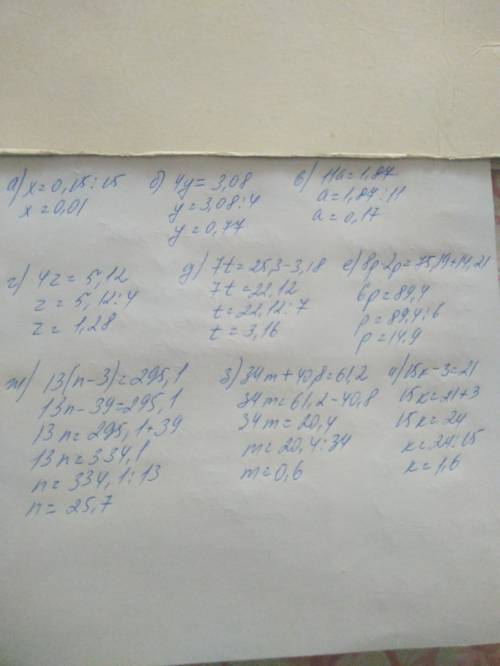 а) x = 0,15:15
x = 0,01
б) 4y = 3,08
y = 3,08:4
y = 0,77
в) 11a = 1,87
a = 1,87:11
a = 0,17
г) 4z = 5,12
z = 5,12:4
z = 1,28
д) 7t = 25,3-3,18
7t = 22,12
t = 22,12:7
t = 3,16
е) 8p-2p = 75,19+14,21
6p = 89,4
p = 89,4:6
p = 14.9
ж) 13(n-3) = 295,1
13n-39 = 295,1
13n = 295,1+39
13n = 334,1
n = 334,1:13
n = 25,7
з) 34m+40,8 = 61,2
34m = 61,2-40,8
34m = 20,4
m = 20,4:34
m = 0,6
и) 15k-3 = 21
15k = 21+3
15k = 24
k = 24:15
k = 1,6